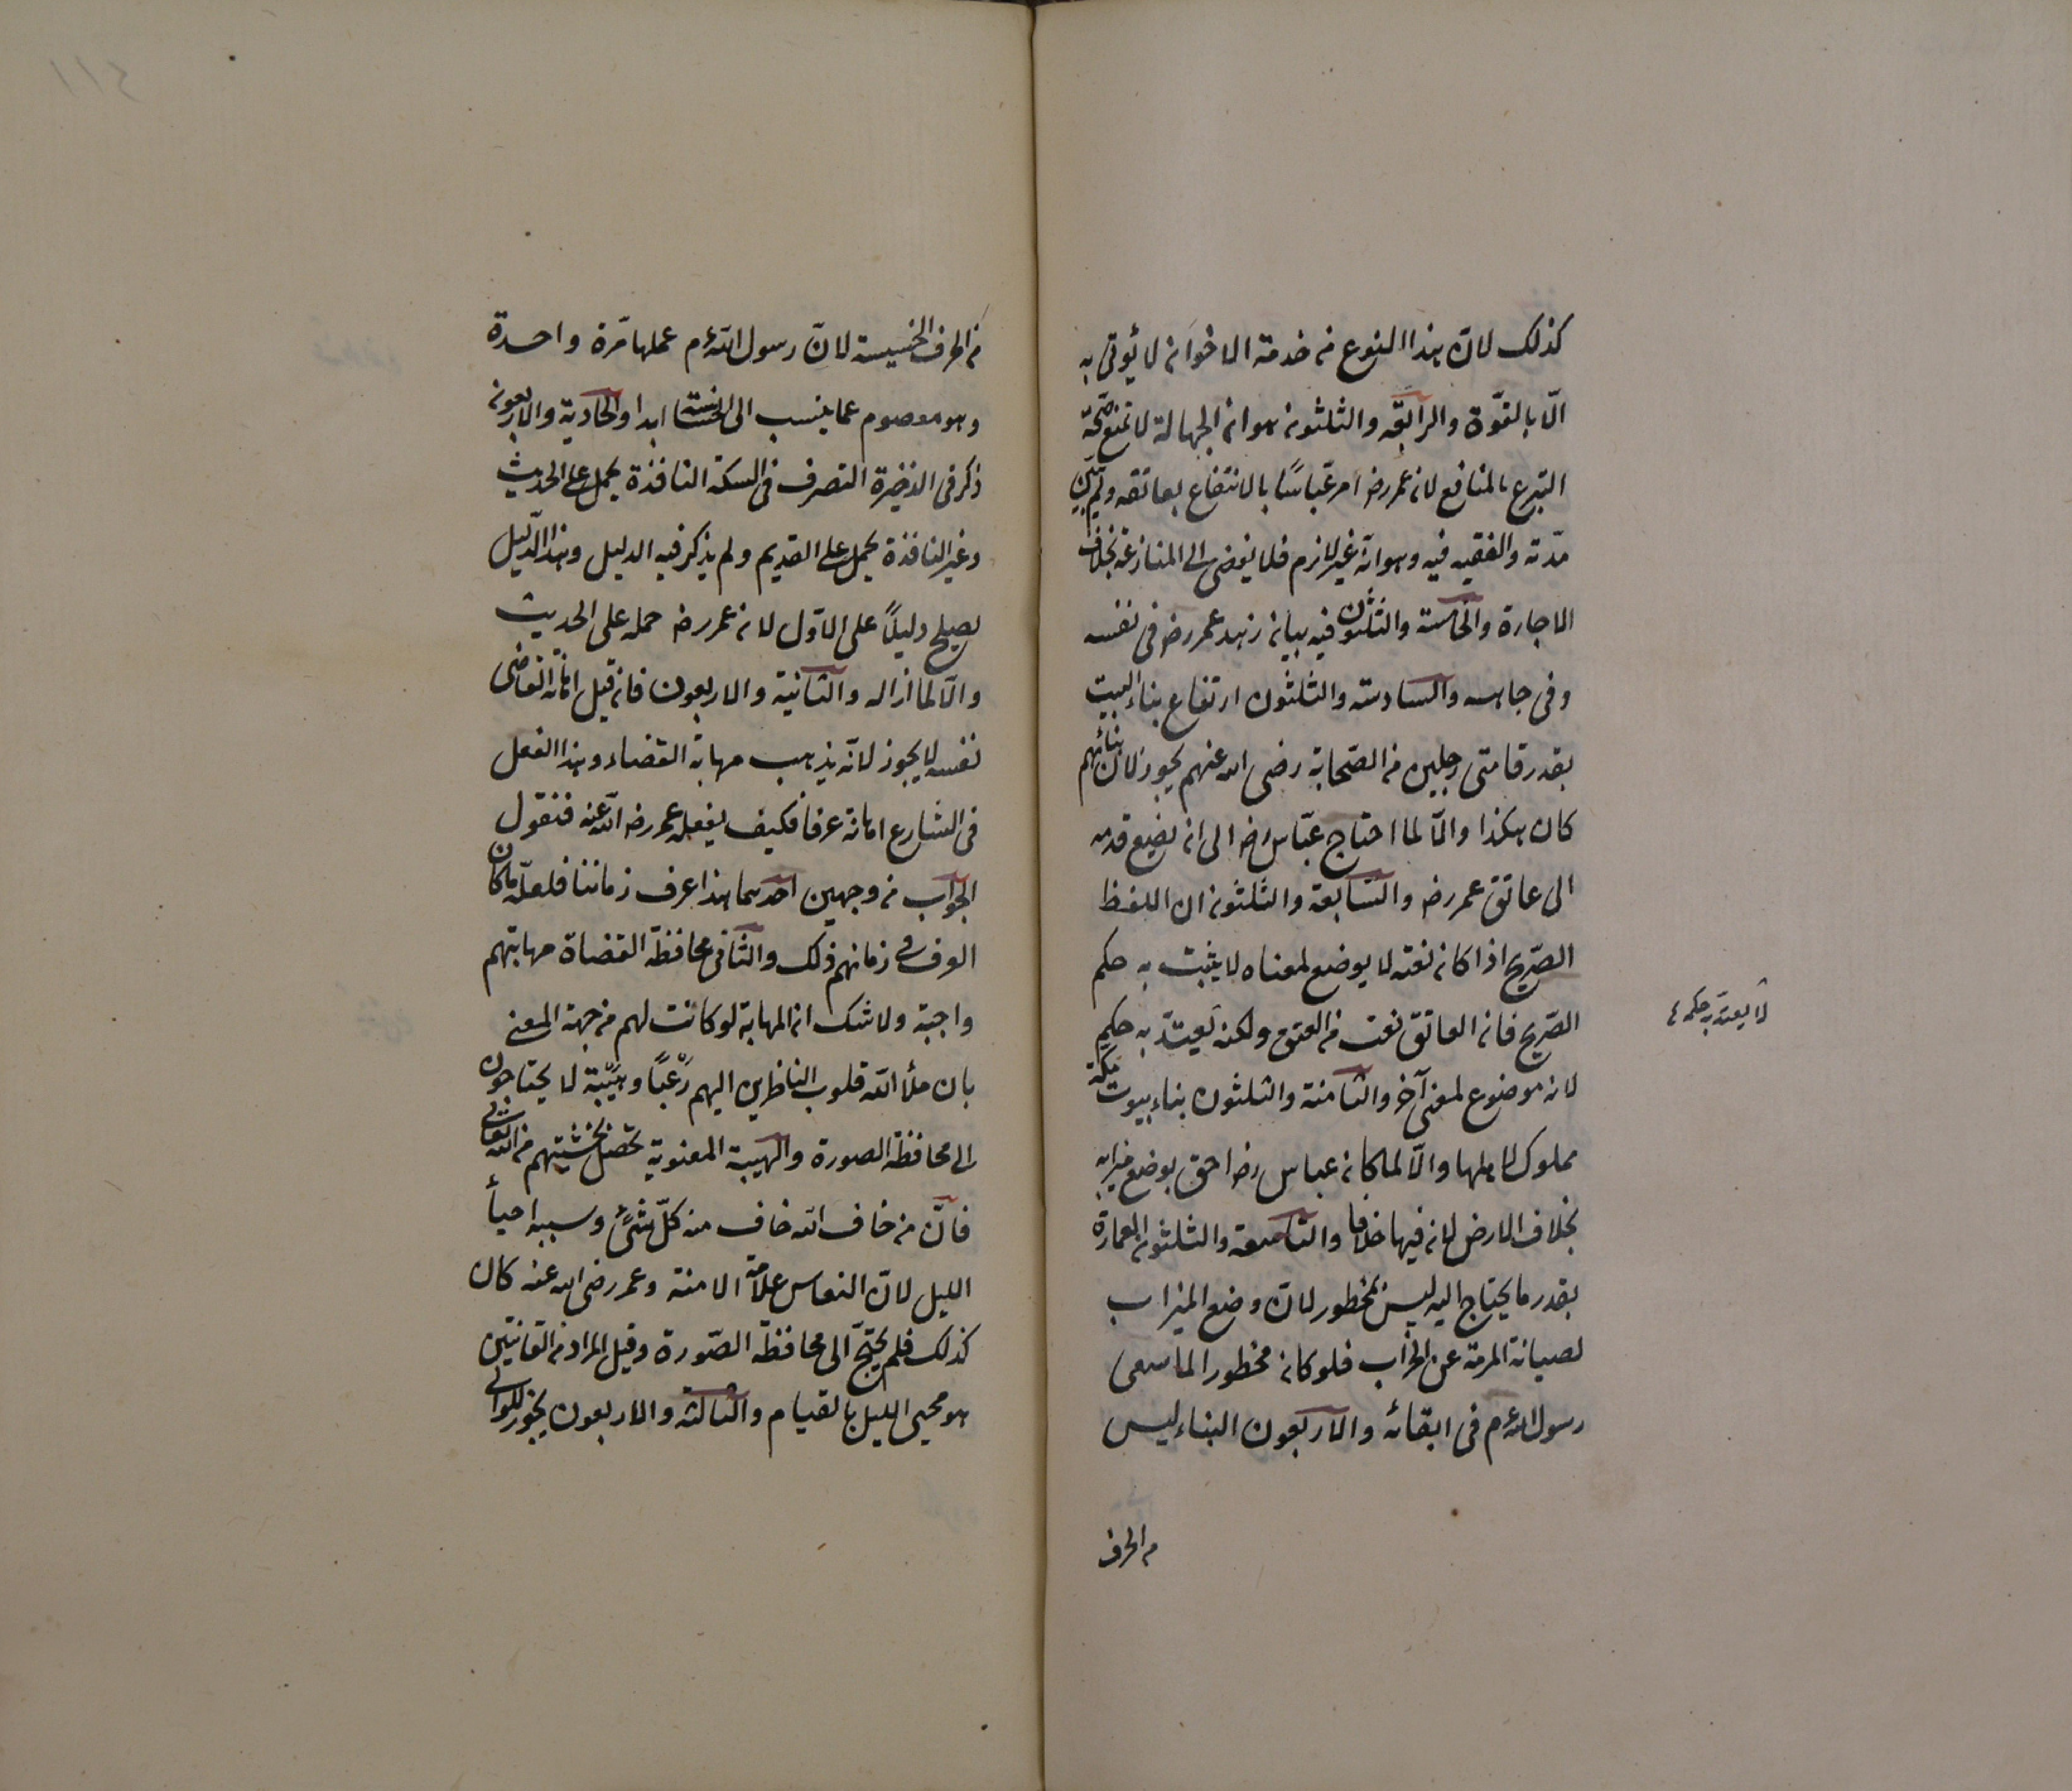 كذلك لانّ هذا النوع من خدمة الاخوان لا يُوتى به
الّا بالقوّة والرابعة والثلثون هو ان الجهالة لا تمنع صحّة
التبرع بالمنافع لان عمر رضـ امر عبّاسًا بالانتفاع بعاتقه ولم يبيّن
مدّته والفقيه فيه وهو انه غير لازم فلا يفضى الى المنازعة بخلاف
الاجارة والخامسة والثلثون فيه بيان زهد عمر رضـ فى نفسه
وفى جاهه والسادسة والثلثون ارتفاع بناء البيت
بقدر قامتى رجلين من الصّحابة رضى الله عنهم يجوز لانّ بنائهم
كان هكذا والّا لما احتاج عبّاس رضـ الى ان يضع قدمه
الى عاتق عمر رضـ والسّابعة والثلثون ان اللفظ
الصّريح اذا كان نعته لا يوضع لمعناه لا يثبت به حكم
الصّريح فان العاتق نعت من العتق ولكن لا يعتدّ به حكم
لا يعتدّ به حكمه ٤
لانه موضوع لمعنى آخر والثامنة والثلثون بناء بيوت مكّة
مملوك لاهلها والّا لما كان عباس رضـ احق بوضع ميزابه
بخلاف الارض لان فيها خلافا والتاسعة والثلثون العمارة
بقدر ما يحتاج اليه ليس بمحظور لانّ وضع الميزاب
لصيانة المرمة عن الخراب فلو كان محظورا لما سعى
رسول الله عم فى ابقائه والاربعون البناء ليس
من الحرف
من الحرف الخسيسة لانّ رسول الله عم عملها مّرة واحدة
وهو معصوم عما ينسب الى الخسة ابدا والحادية والاربعون
ذكر فى الذخيرة التصرف فى السكة النافذة يحمل على الحديث
وغير النافذة يحمل على القديم ولم يذكر فيه الدليل وهذا الدّليل
يصلح دليلًا على الاوّل لان عمر رضـ حمله على الحديث
والّا لما ازاله والثانية والاربعون فان قيل اهانة القاضى
نفسه لا يجوز لانّه يذهب مهابة القضاء وهذا الفعل
فى الشارع اهانة عرفا فكيف يفعله عمر رضـ الله عنه فنقول
الجواب من وجهين احدهما هذا عرف زماننا فلعلّ ما كان
العرف فى زمانهم ذلك والثانى محافظة القضاة مهابتهم
واجبة ولا شك ان المهابة لو كانت لهم من جهة المعنى
بان ملأ الله قلوب الناظرين اليهم رُعْبًا وهَيْبَة لا يحتاجون
الى محافظة الصورة والهيبة المعنوية تحصل بخشيتهم من الله تعالى
فانّ من خاف الله خاف منه كلّ شئ وسببه احيأ
الليل لانّ النعاس علامة الامنة وعمر رضى الله عنه كان
كذلك فلم يحتجّ الى محافظة الصّورة وقيل المراد من القانتين
هو محيى الليل بالقيام والثالثة والاربعون يجوز للوالى
٢١١